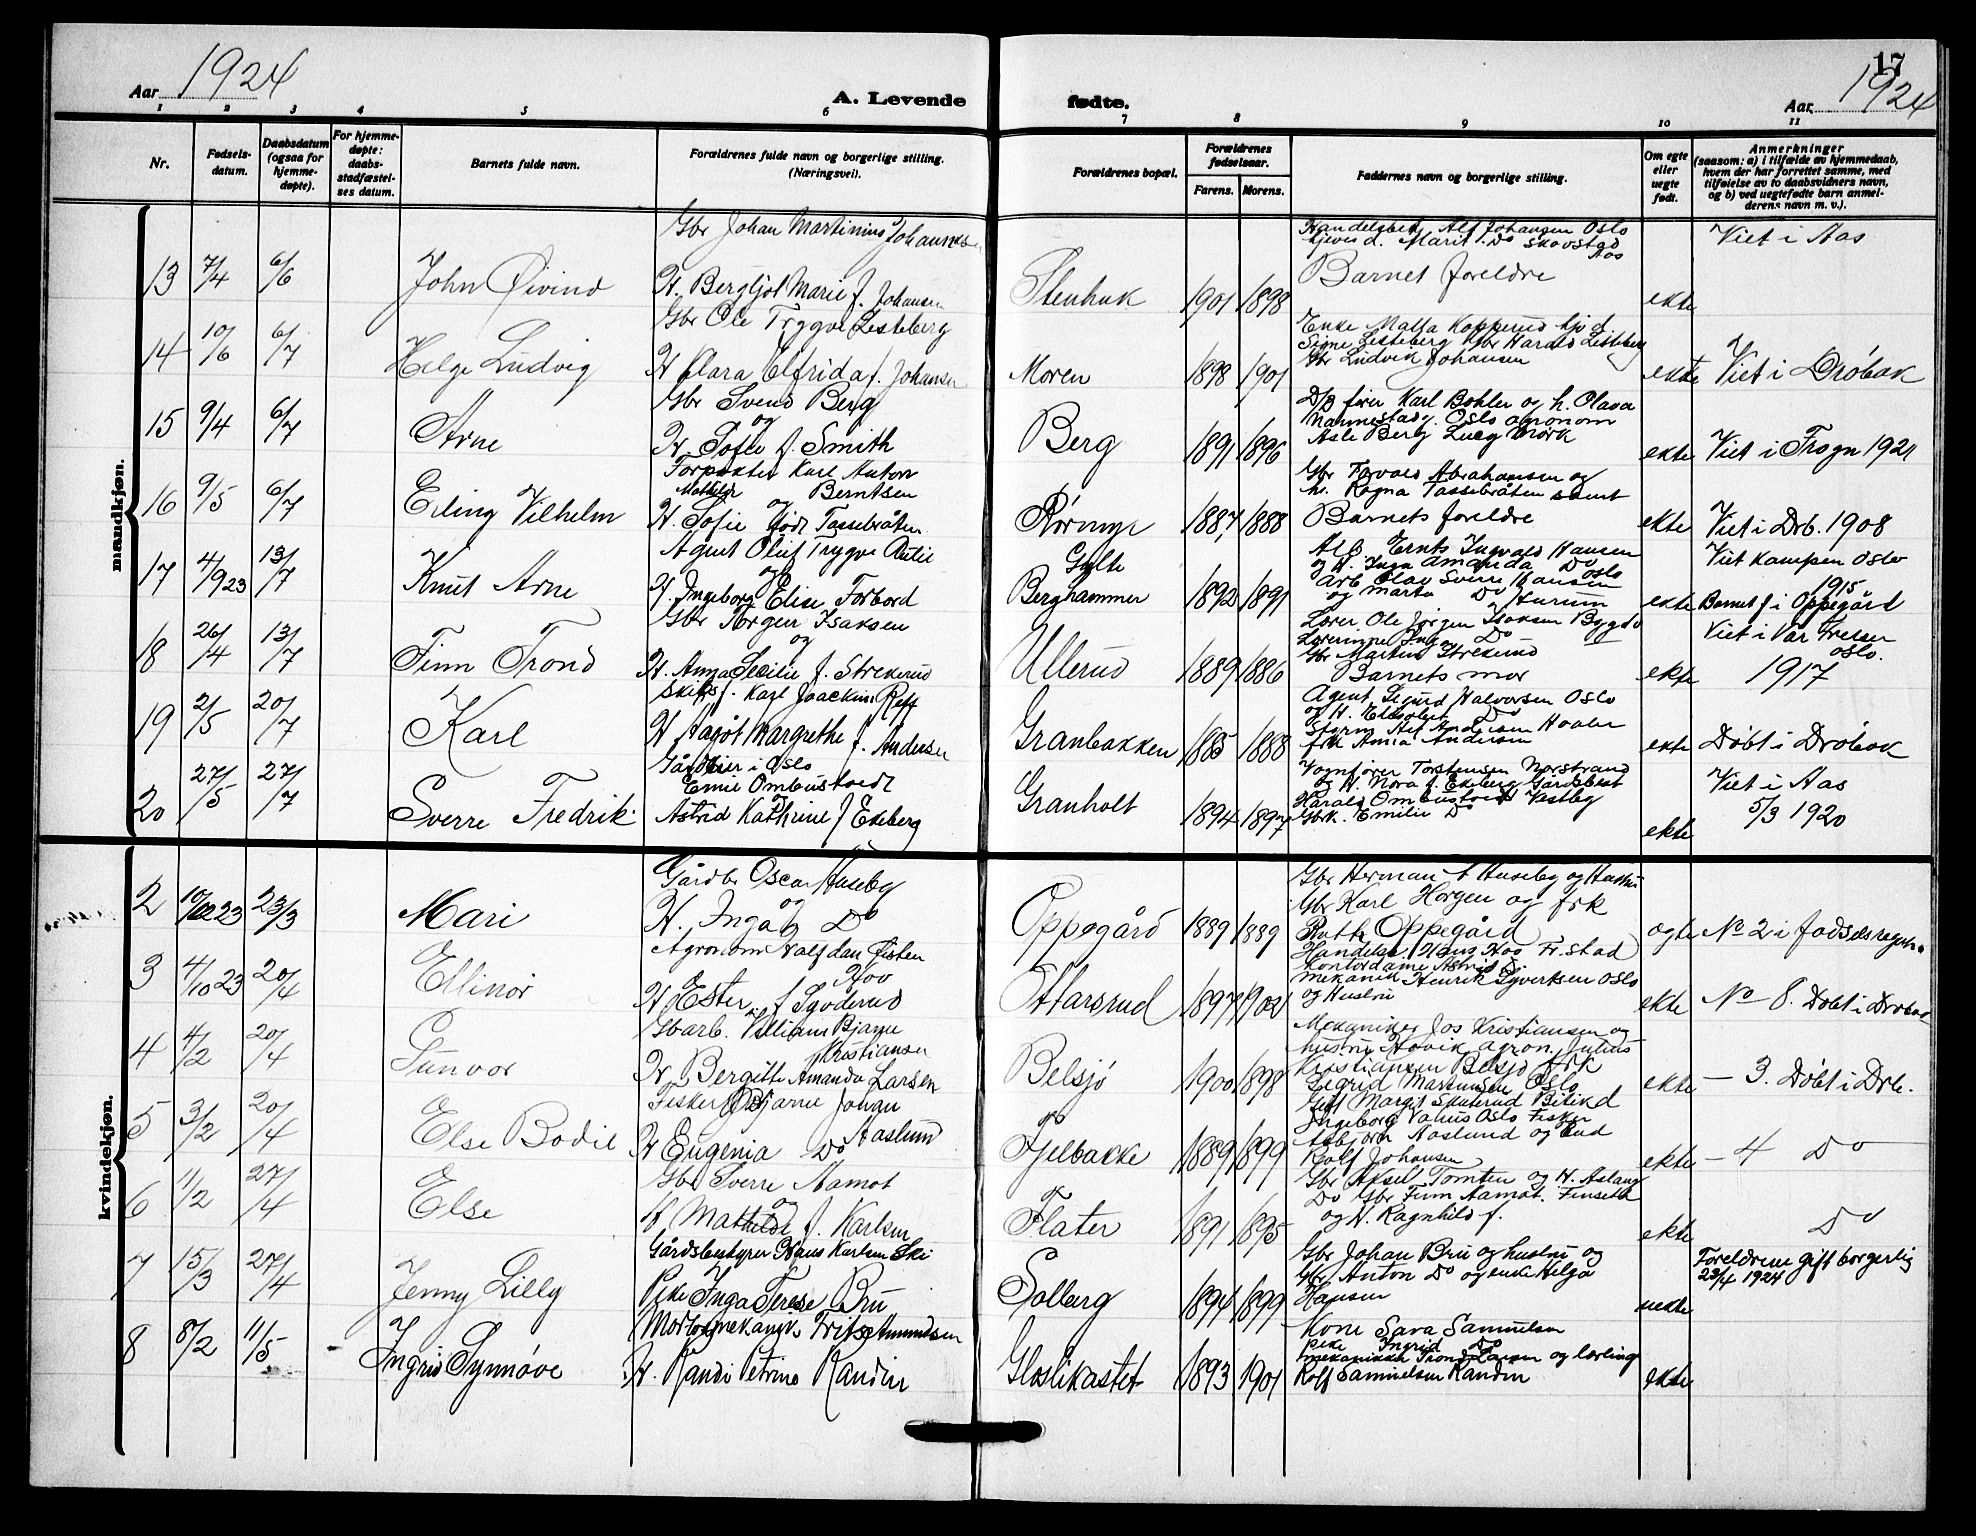 17
Aar 1924
A. Levende fødte.
Aar 1924
1 2 3 4 5 6 7 8 9 10 11
Nr.
Fødsels-
datum.
Daabsdatum
(ogsaa for
hjemme-
døpte).
For hjemme-
døpte:
daabs-
stadfæstel-
ses datum.
Barnets fulde navn.
Forældrenes fulde navn og borgerlige stilling.
(Næringsvei).
Forældrenes bopæl.
Forældrenes
fødselsaar.
Farens. Morens.
Faddernes navn og borgerlige stilling.
Om egte
eller
uegte
født.
Anmerkninger
(saasom: a) i tilfælde av hjemmedaab,
hvem der har forrettet samme, med
tilføielse av to daabsvidners navn,
og b) ved uegtefødte barn anmel-
derens navn m. v.).
mandkjøn.
Gbr Johan Martinius Johansen
Alf Johansen Oslo
Marit Do Skovstad
Aas
Viet i Aas
13 7/4 6/6 John Øivind
H. Bergljot Marie f. Johansen
Stenhuk 1901 1898
Barnet foreldre
ekte
Gbr Ole Trygve Lesteberg
14 10/6 6/7 Helge Ludvig
H Klara Elfrida f. Johansen
Moren 1898 1901
Gbr Ludvik Johansen
ekte Viet i Drøbak
Gbr Svend Berg
og
15 9/4 6/7 Arne
Hr Sofie f. Smith
Berg 1891 1896
Karl Bohler og h. Olava
Oslo agronom
Asle Berg
ekte Viet i Frogn 1921
Karl Anton
Mathilde Berntsen
og
16 9/5 6/7 Erling Vilhelm
H. Sofie født Tassebråten
1887 1888
Abrahamsen og
h. Ragna Tassebråten samt
Barnets foreldre
ekte Viet i Drb. 1908
Agent Oluf Trygve
og
17 4/9 23 13/7 Knut Arne
H. Ingeborg Elise Forbord
Gylte
Berghammer 1892 1891
Ingvald Hansen
og H. Inga Amanda Do
Oslo
Arb Olav Sverre Hansen
og Marta Do Hurum
ekte
Viet Kampen Oslo
1915
Barnet f i Oppegård
Gbr Jørgen Isaksen
og
18 26/4 13/7 Finn Trond
H. Anna Cecilie f. Strekerud
Ullerud 1889 1886
Lærer Ole Jørgen Isaksen Bygdø
Lærerinne Inga Do
Gbr Martin
Barnets mor
ekte
Viet i Vår Frelser
Oslo.
1917
Karl Joackim
19 2/5 20/7 Karl
H Aagot Margrethe f. Andersen
Granbakken 1885 1888
Agent Sigurd Halvorsen Oslo
og H. Do
frk Anna Andersen
ekte Døbt i Drøbak
i Oslo
Emil Ombustvedt
og
20 27/5 27/7 Sverre Fredrik
Astrid Kathrine f Ekeberg
Granholt 1894 1897
Vognfører Torstensen Norstrand
og H. Nora f. Ekeberg
Harald Ombustvedt Vestby
Gbrk. Emilie Do
ekte
Viet i Aas
5/3 1920
kvindekjøn.
Gårdbr Oscar Huseby
og
2 23/3 Mari
H. Inga Do
Oppegård 1889 1889
Gbr Herman Huseby og Hustru
Gbr Karl Horgen og frk
Ruth Oppegård
No 2 i fødselsregist.
Agronom Halfdan Øisten
3 4/10 23 20/4 Ellinor
H Ester f Sgoderud
1897 1902
Kontordame Astrid Do
Mekanik Henrik Syvertsen Oslo
og Hustru
ekte No 8. Døbt i Drøbak
Gbarb. William Bjarne
Kristiansen
4 4/2 20/4 Gunvor
Hr Bergitte Amanda Larsen
Belsjø 1900 1898
Mekaniker Jos Kristiansen og
Kristiansen Belsjø frk
Sigrid Martinsen Oslo
ekte – 3. Døbt i Drb.
Fisker Bjarne Johan
Aaslund
5 3/2 20/4 Else Bodil
H Eugenia Do
Fjelbakke 1889 1899
Oslo Fisker
Asbjørn Aaslund og
Rolf Johansen
ekte – 4 Do
Gbr Sverre Aamot
og
6 11/2 27/4 Else
H Mathilde f. Karlsen
Flater 1891 1895
Gbr Aksel Tomten og H. Aslaug
Do Gbr Finn Aamot.
og H. Ragnhild f.
ekte Do
Gårdsbestyrer Hans Karlsen Ski
7 15/3 27/4 Jenny Lilly
Pike Inga Terese Bru
Solberg 1894 1899
Gbr Johan Bru og hustru og
Gbr. Anton Do og enke Helga
Hansen
uekte
Foreldrene gift borgerlig
23/4 1924
Motormekanik. Amundsen
8 8/2 11/5 Ingrid Synnøve
H. Randi Petrine Randin
Gloslikastet 1893 1901
Kone Sara Samuelsen
Pike Ingrid Do
mekaniker Trond Larsen og lærling
Rolf Samuelsen Randin
ekte